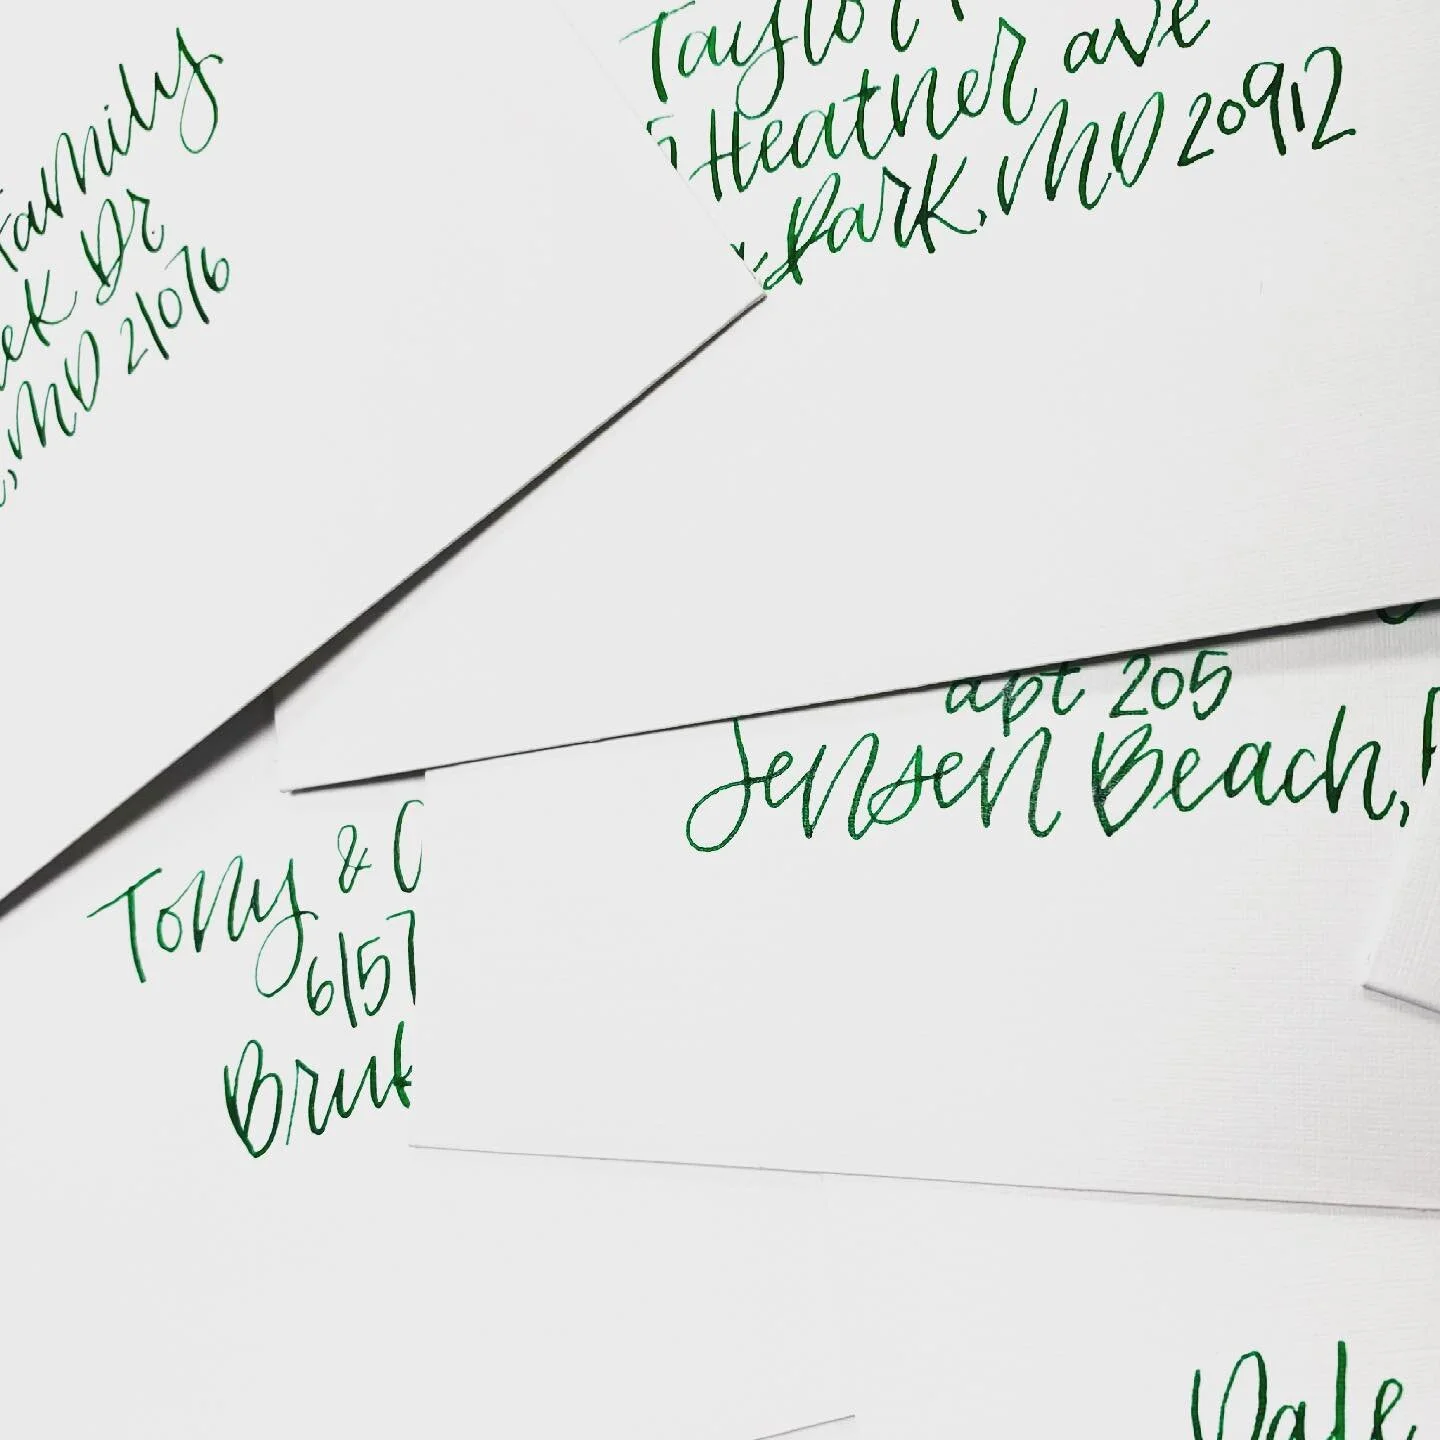 Family
Dr
MD 21076
Taylor
Heather ave
Park, MD 20912
apt 205
Jensen Beach,
Tony &
6157
Dale